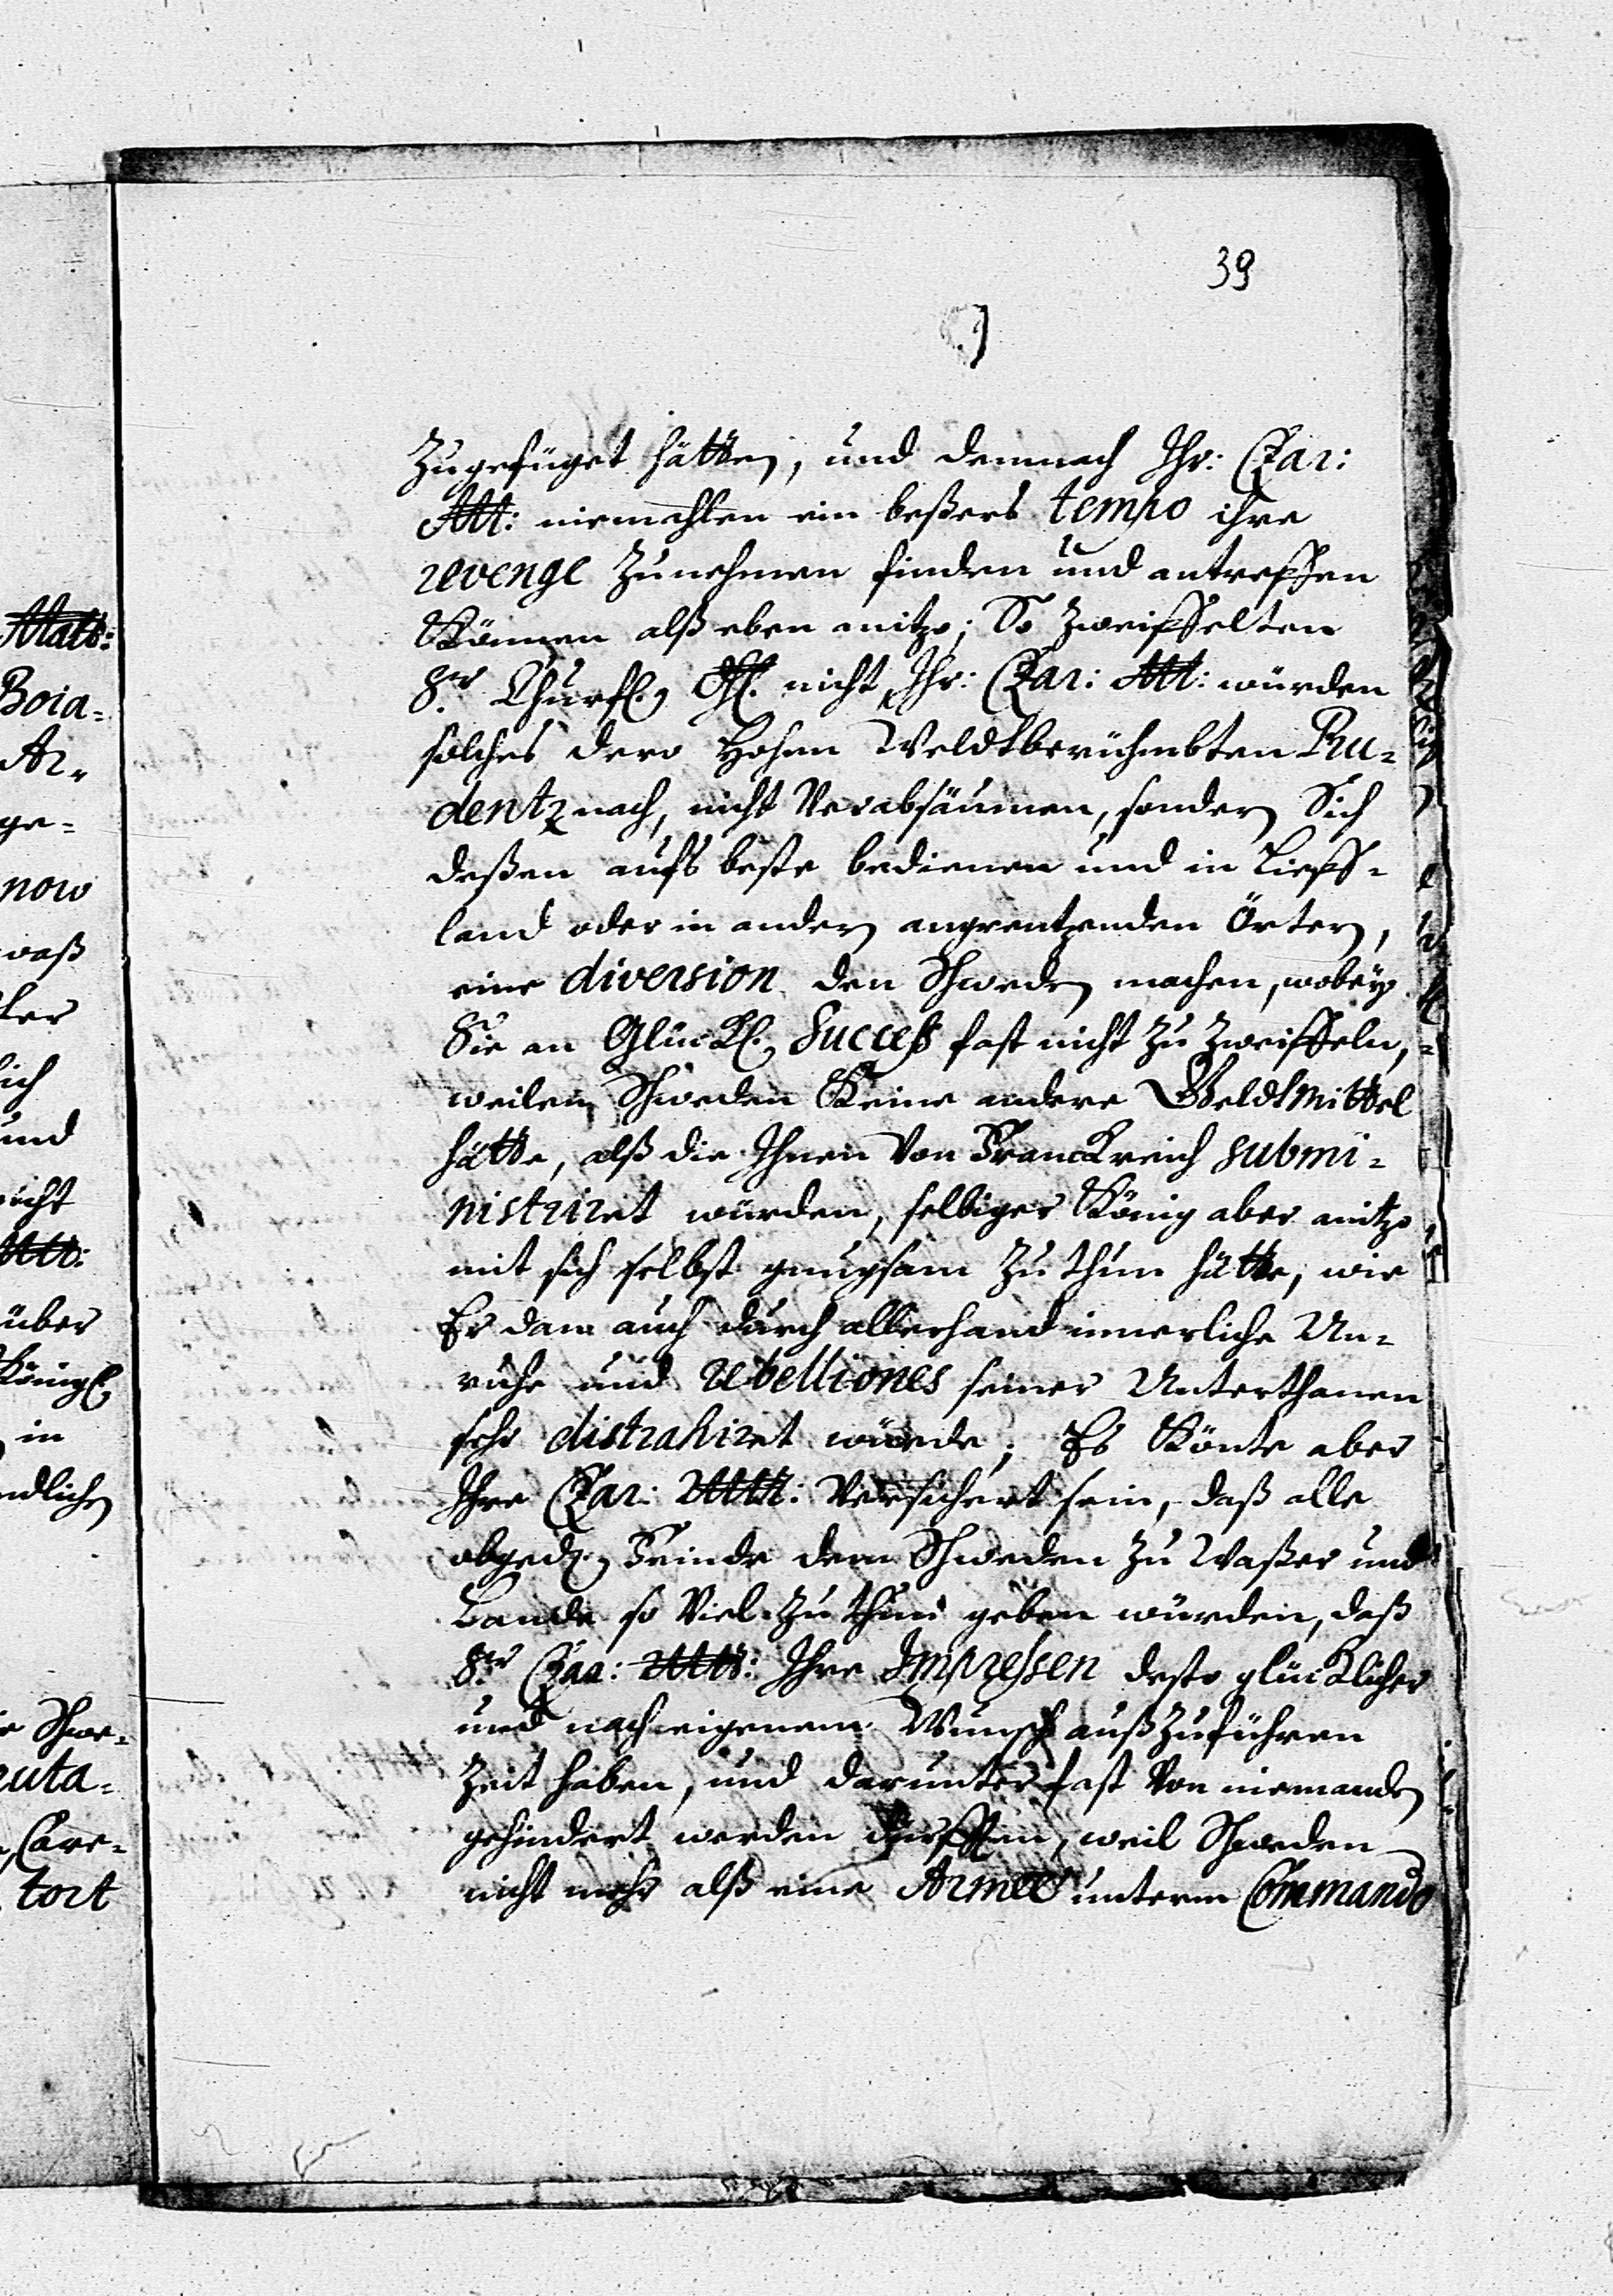 39
zugefüget hätten, und demnach Ihr: Czar:
Mtt: niemahlen ein beßers tempo ihre
revenge zunehmen finden und antreffen
Können alß eben anitzo; So zweiffelten
Sr. Churfl. Dhl. nicht, Ihr: Czar: Mtt: würden
solches dero Hohen Weldtberühmbten Pru-
dentz nach, nicht Verabsäumen, sondern Sich
deßen aufs beste bedienen und in Lieff-
land oder in andern angrentzenden Örtern,
eine diversion den Schweden machen, wobey
Sie an Glückl. Success fast nicht zu zweiffeln,
weilen Schweden Keine andere Geldtmittel
hätte, alß die Ihnen Von Franckreich submi-
nistriret würden, selbiger König aber anitzo
mit sich selbst genugsam zu thun hätte, wie
Er dann auch durch allerhand innerliche Un-
ruhe und rebelliones seiner Unterthanen
sehr distrahiret würde; Es Könte aber
Ihre Czar: Mtt: Versichert sein, daß alle
obged. Feinde dem Schweden zu Waßer und
Lande so Viel zu thun geben würden, daß
Sr Czar: Mtt: Ihre Impressen desto glücklicher
und nach eigenem Wunsch außzuführen
Zeit haben, und darunter fast Von niemanden
gehindert werden dürfften, weil Schweden
nicht mehr alß eine Armée unterm Commando
Matt:
Boia-
Ar-
ge-
now
waß
ker
lich
und
nicht
Mtt:
über
Königl.
in
ndlichen
Schwe-
ruta-
Care-
tort